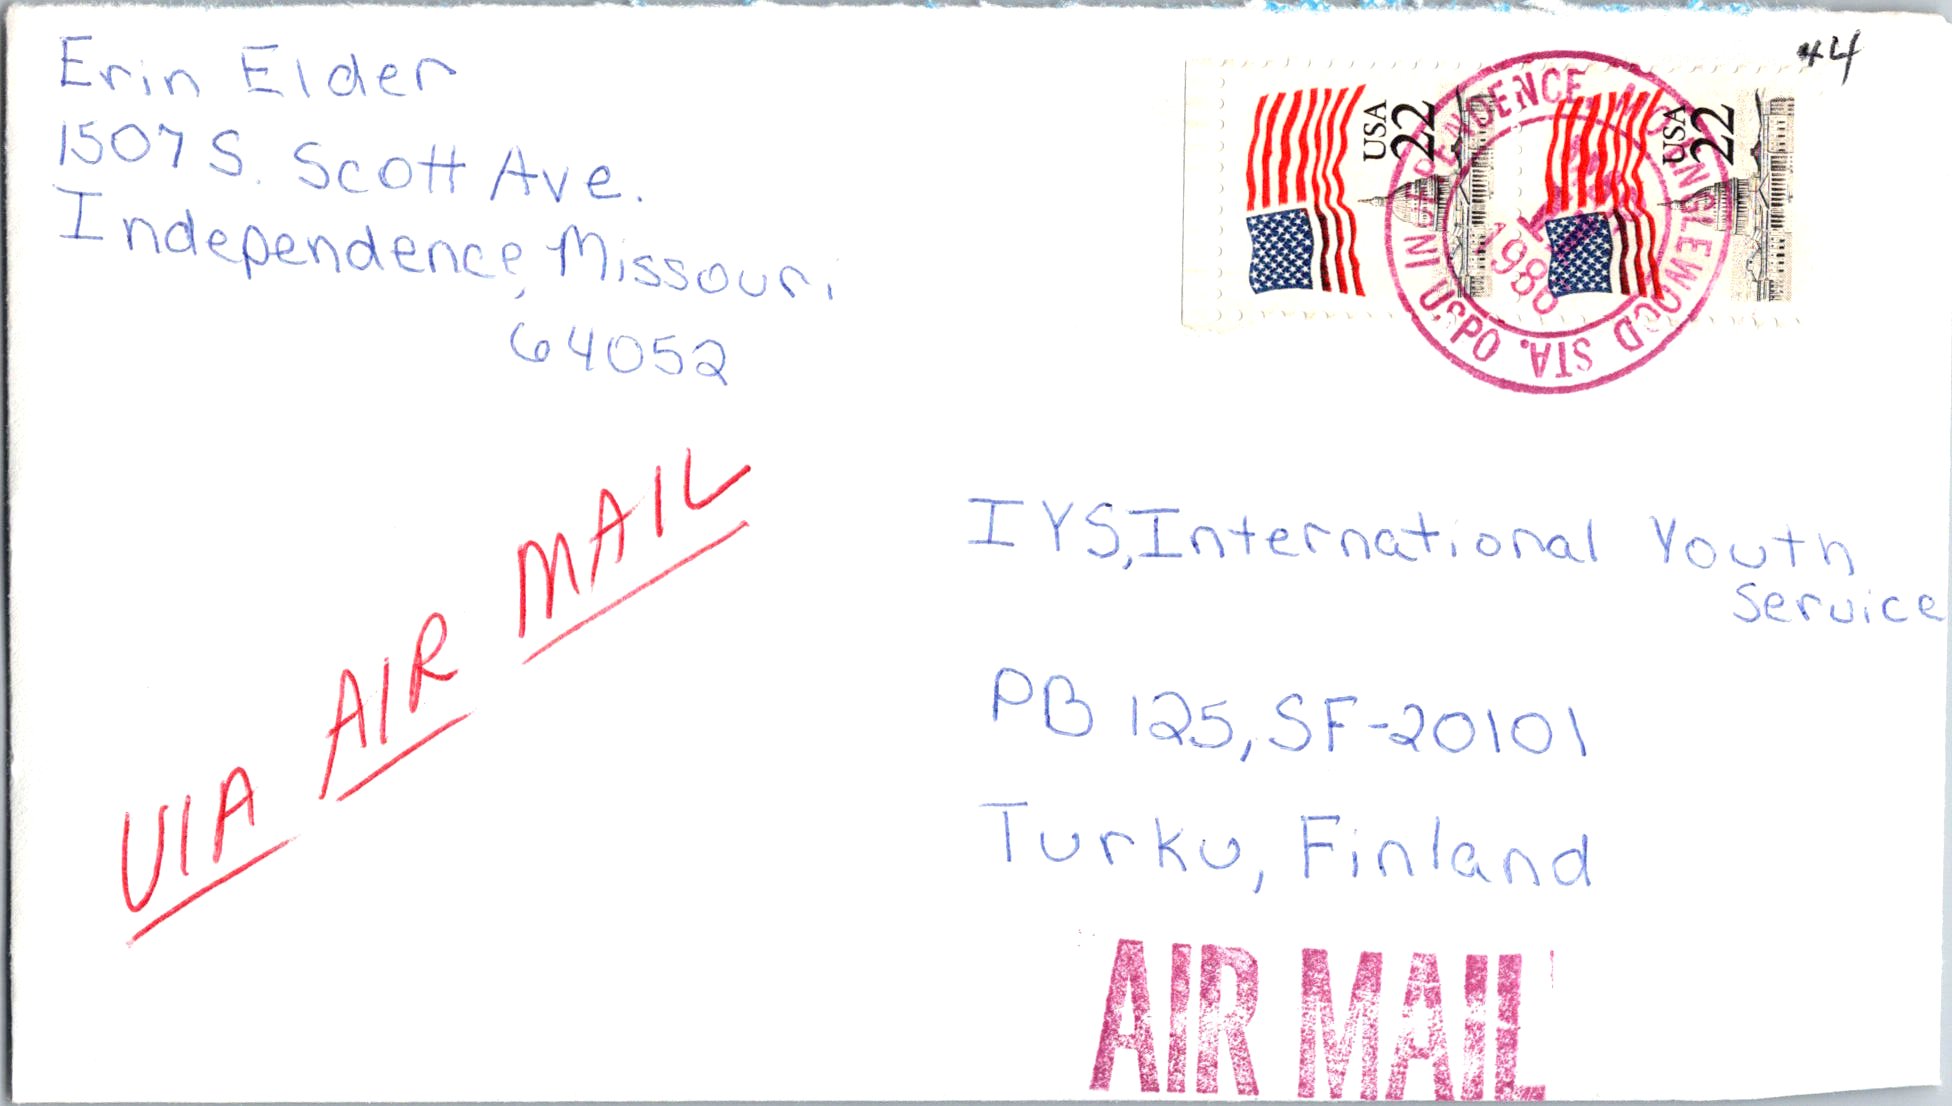 Erin Elder
1507 S. Scott Ave.
Independence, Missouri
64052
44
USA
22
USA
22
INDEPENDENCE, MO. ENGLEWOOD STA. USPO
1986
VIA AIR MAIL
IYS, International Youth
Service
PB 125, SF-20101
Turku, Finland
AIR MAIL